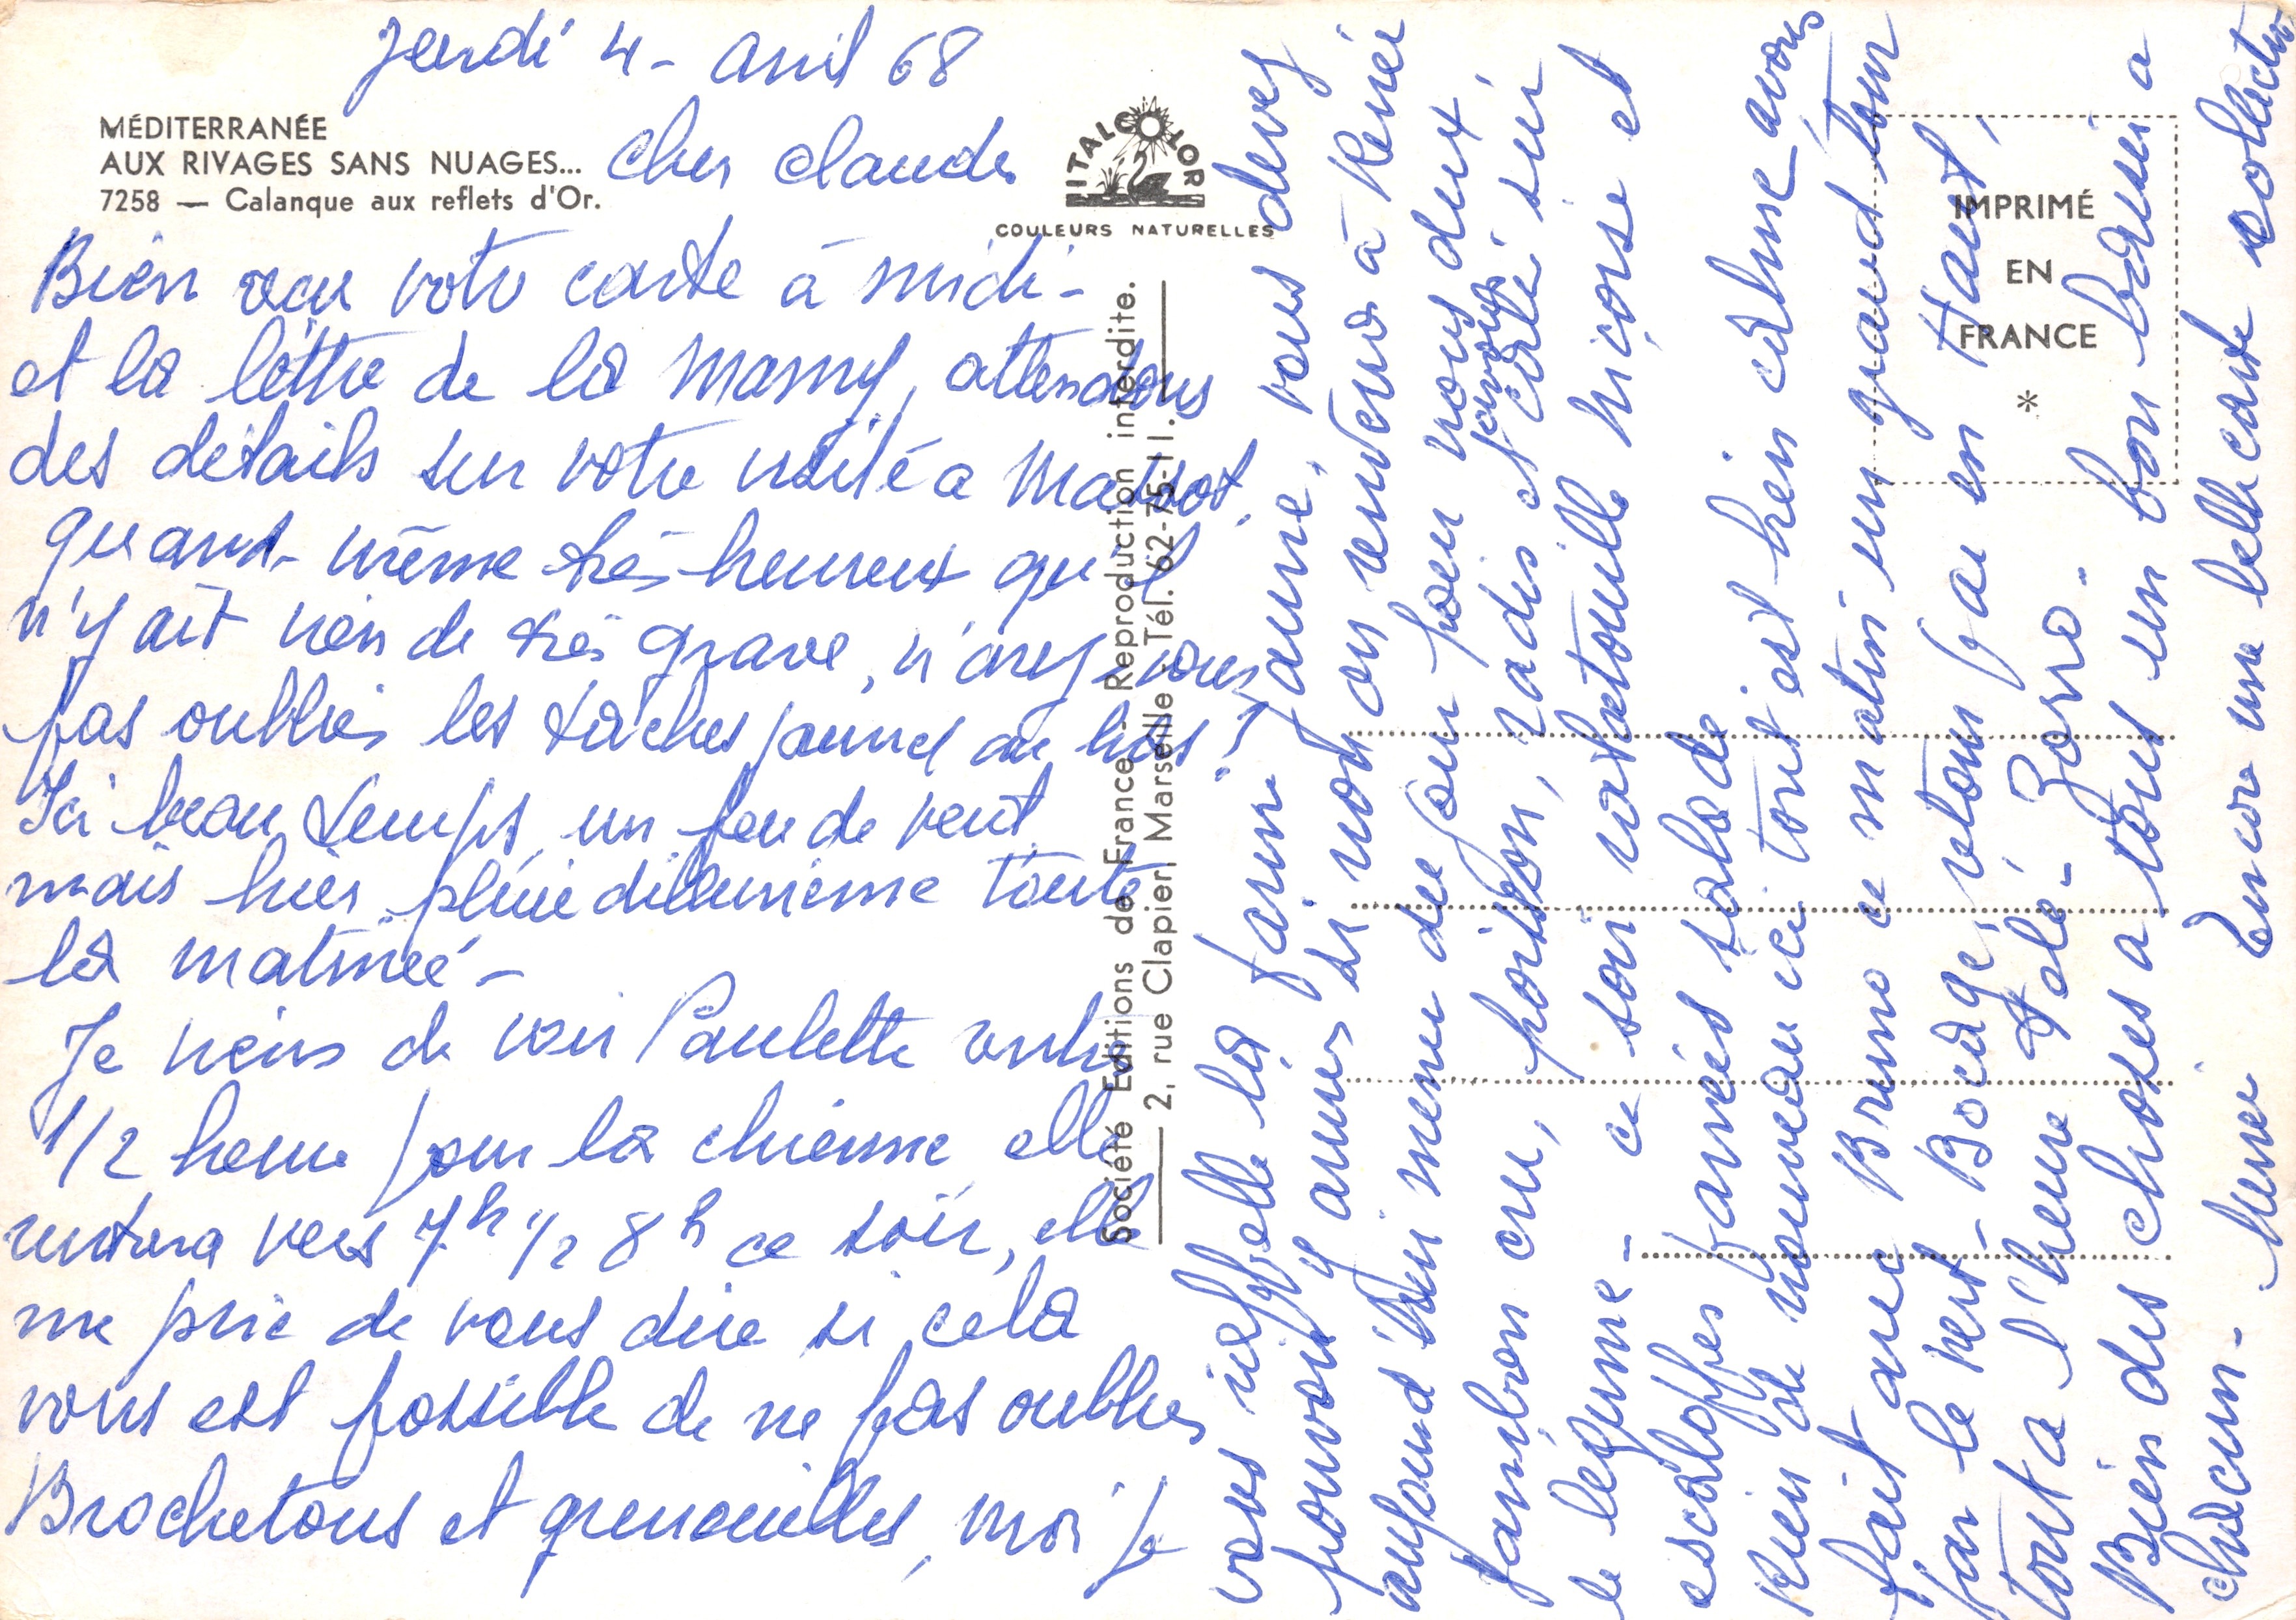 Jeudi 4 - Avril 68
MÉDITERRANÉE
AUX RIVAGES SANS NUAGES...
7258 — Calanque aux reflets d'Or.
Cher Claude
ITALCOLOR
COULEURS NATURELLES
Bien reçu votre carte à midi -
et la lettre de la Mamy, attendons
des détails sur votre visite a Massot,
quand-même très heureux qu'il
n'y ait rien de très grave, n'avez-vous
pas oublié les tâches jaunes au bras ?
Ici beau temps, un peu de vent
mais hier pluie diluvienne toute
la matinée -
Je viens de voir Paulette rentré
1/2 heure pour la chienne elle
rentrera vers 7h 1/2 8h ce soir, elle
me prie de vous dire si cela
vous est possible de ne pas oublier
Brochetons et grenouilles, moi je
Société Editions de France - Reproduction interdite.
2, rue Clapier Marseille - Tél. 62-75-11.
vous rappelle la farine jaune, vous devez
pouvoir y amener si non on reviens à René
aujourd'hui menu du jour pour nous deux,
jambon cru, poisson, radis et céleri sur
le légume - ce soir ratatouille niçoise et
escaloppes panées salade
Rien de nouveau ici tout est bien calme - avons
fait avec Bruno ce matin un grand tour
par le vert - Bocage, retour par en Haut,
tout a l'heure Zorro -
Bien des choses a tous un bon baiser a
chacun - Mémé
Encore une belle carte collection
IMPRIMÉ
EN
FRANCE
*